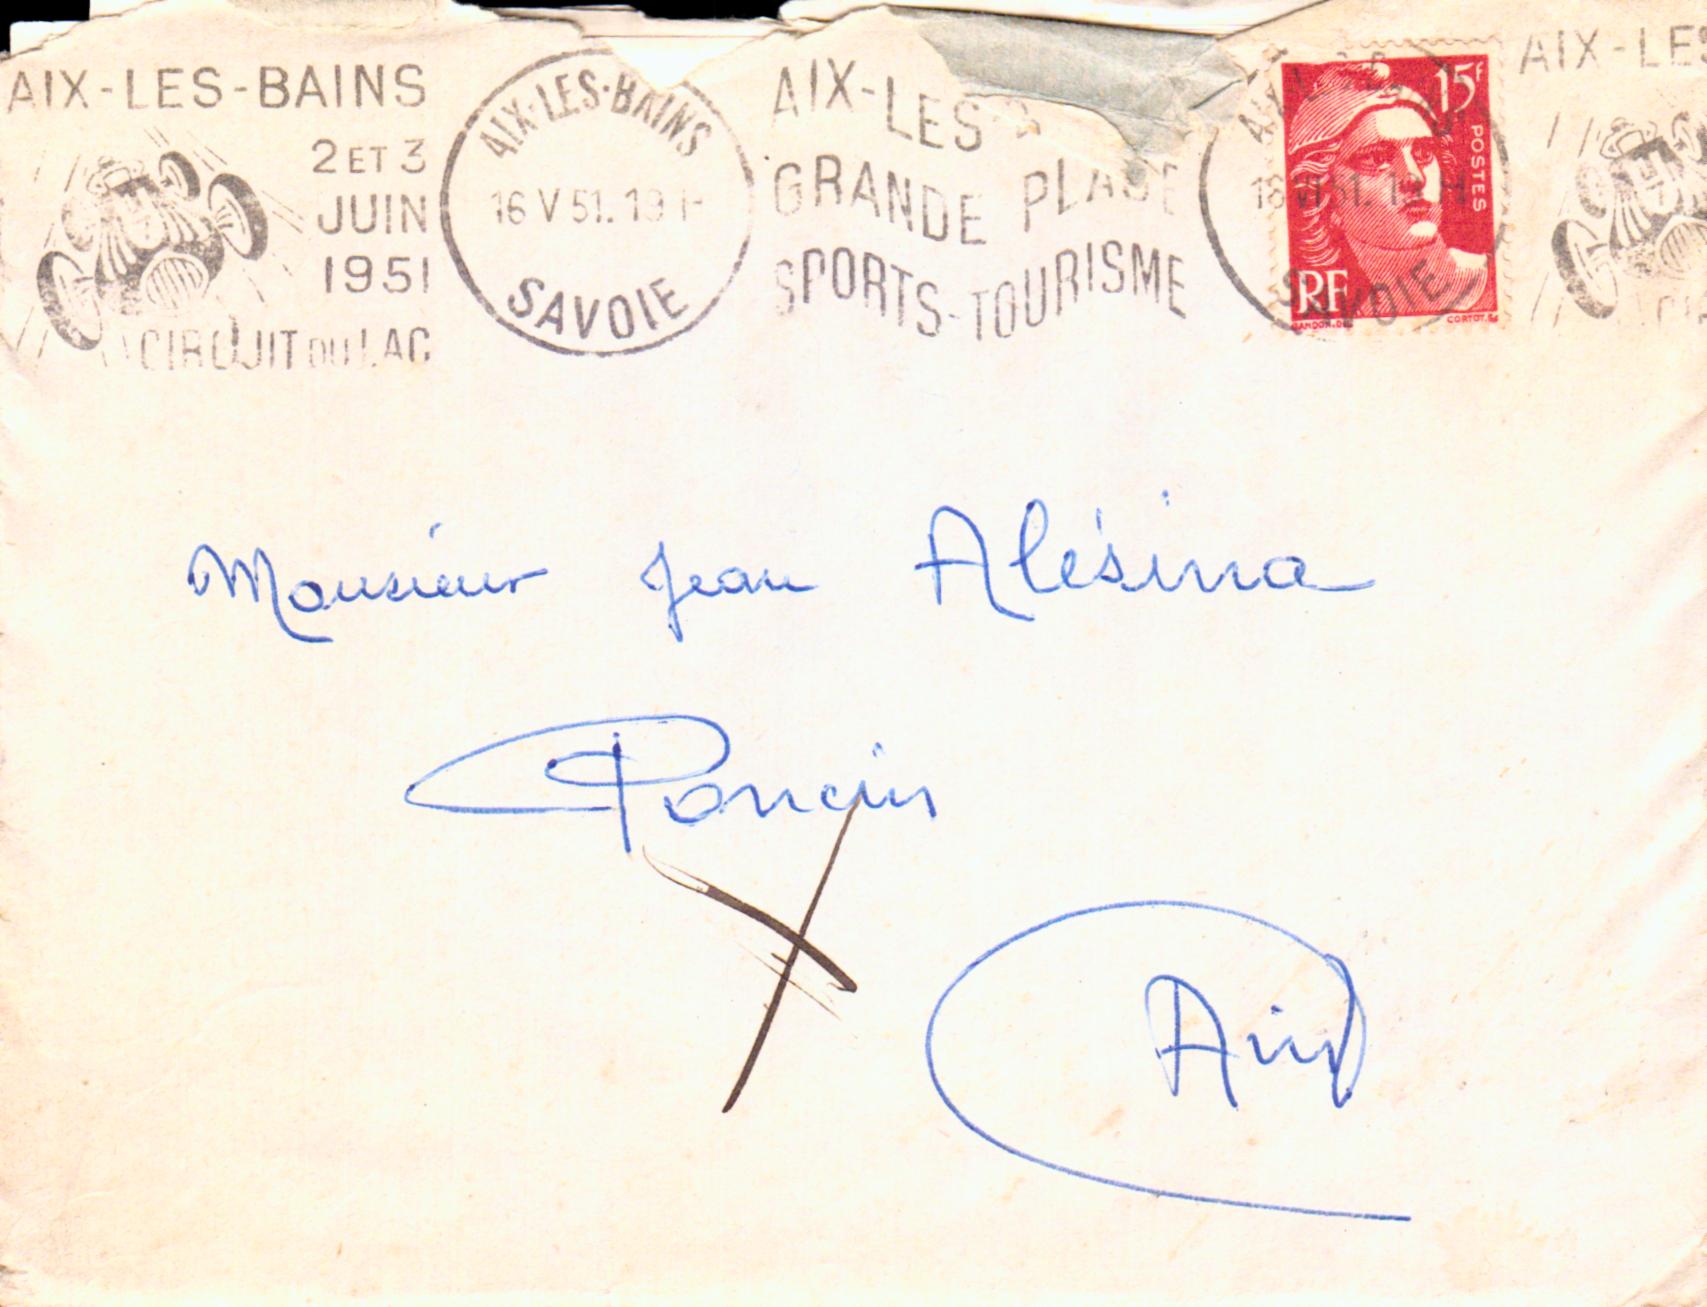 AIX-LES-BAINS
2 ET 3
JUIN
1951
CIRCUIT DU LAC
AIX-LES-BAINS
16 V 51. 19 H
SAVOIE
AIX-LES
GRANDE PLAGE
SPORTS-TOURISME
SAVOIE
15F
POSTES
RF
GANDON.DEL
CORTOT.SC
AIX-LES
Monsieur Jean Alésina
Poncin
Ain